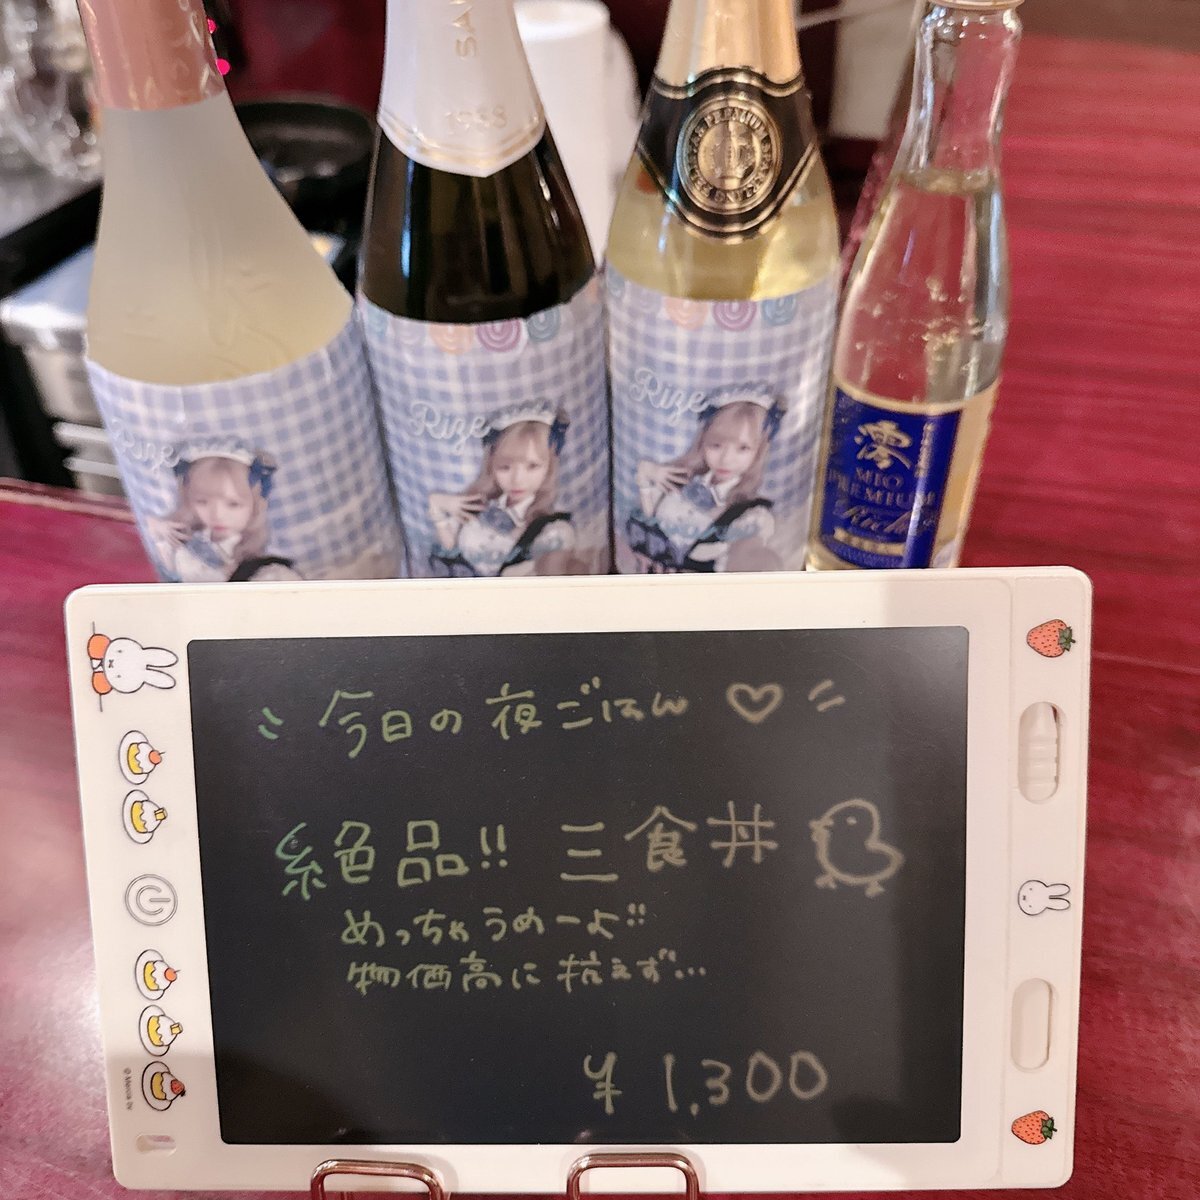 SAN
1938
PREMIUM SPARKLING
Rize
Rize
Rize
澪
MIO
PREMIUM
Rich
今日の夜ごはん♡
絶品!! 三食丼
めっちゃうめーよ!!
物価高に抗えず…
¥1,300